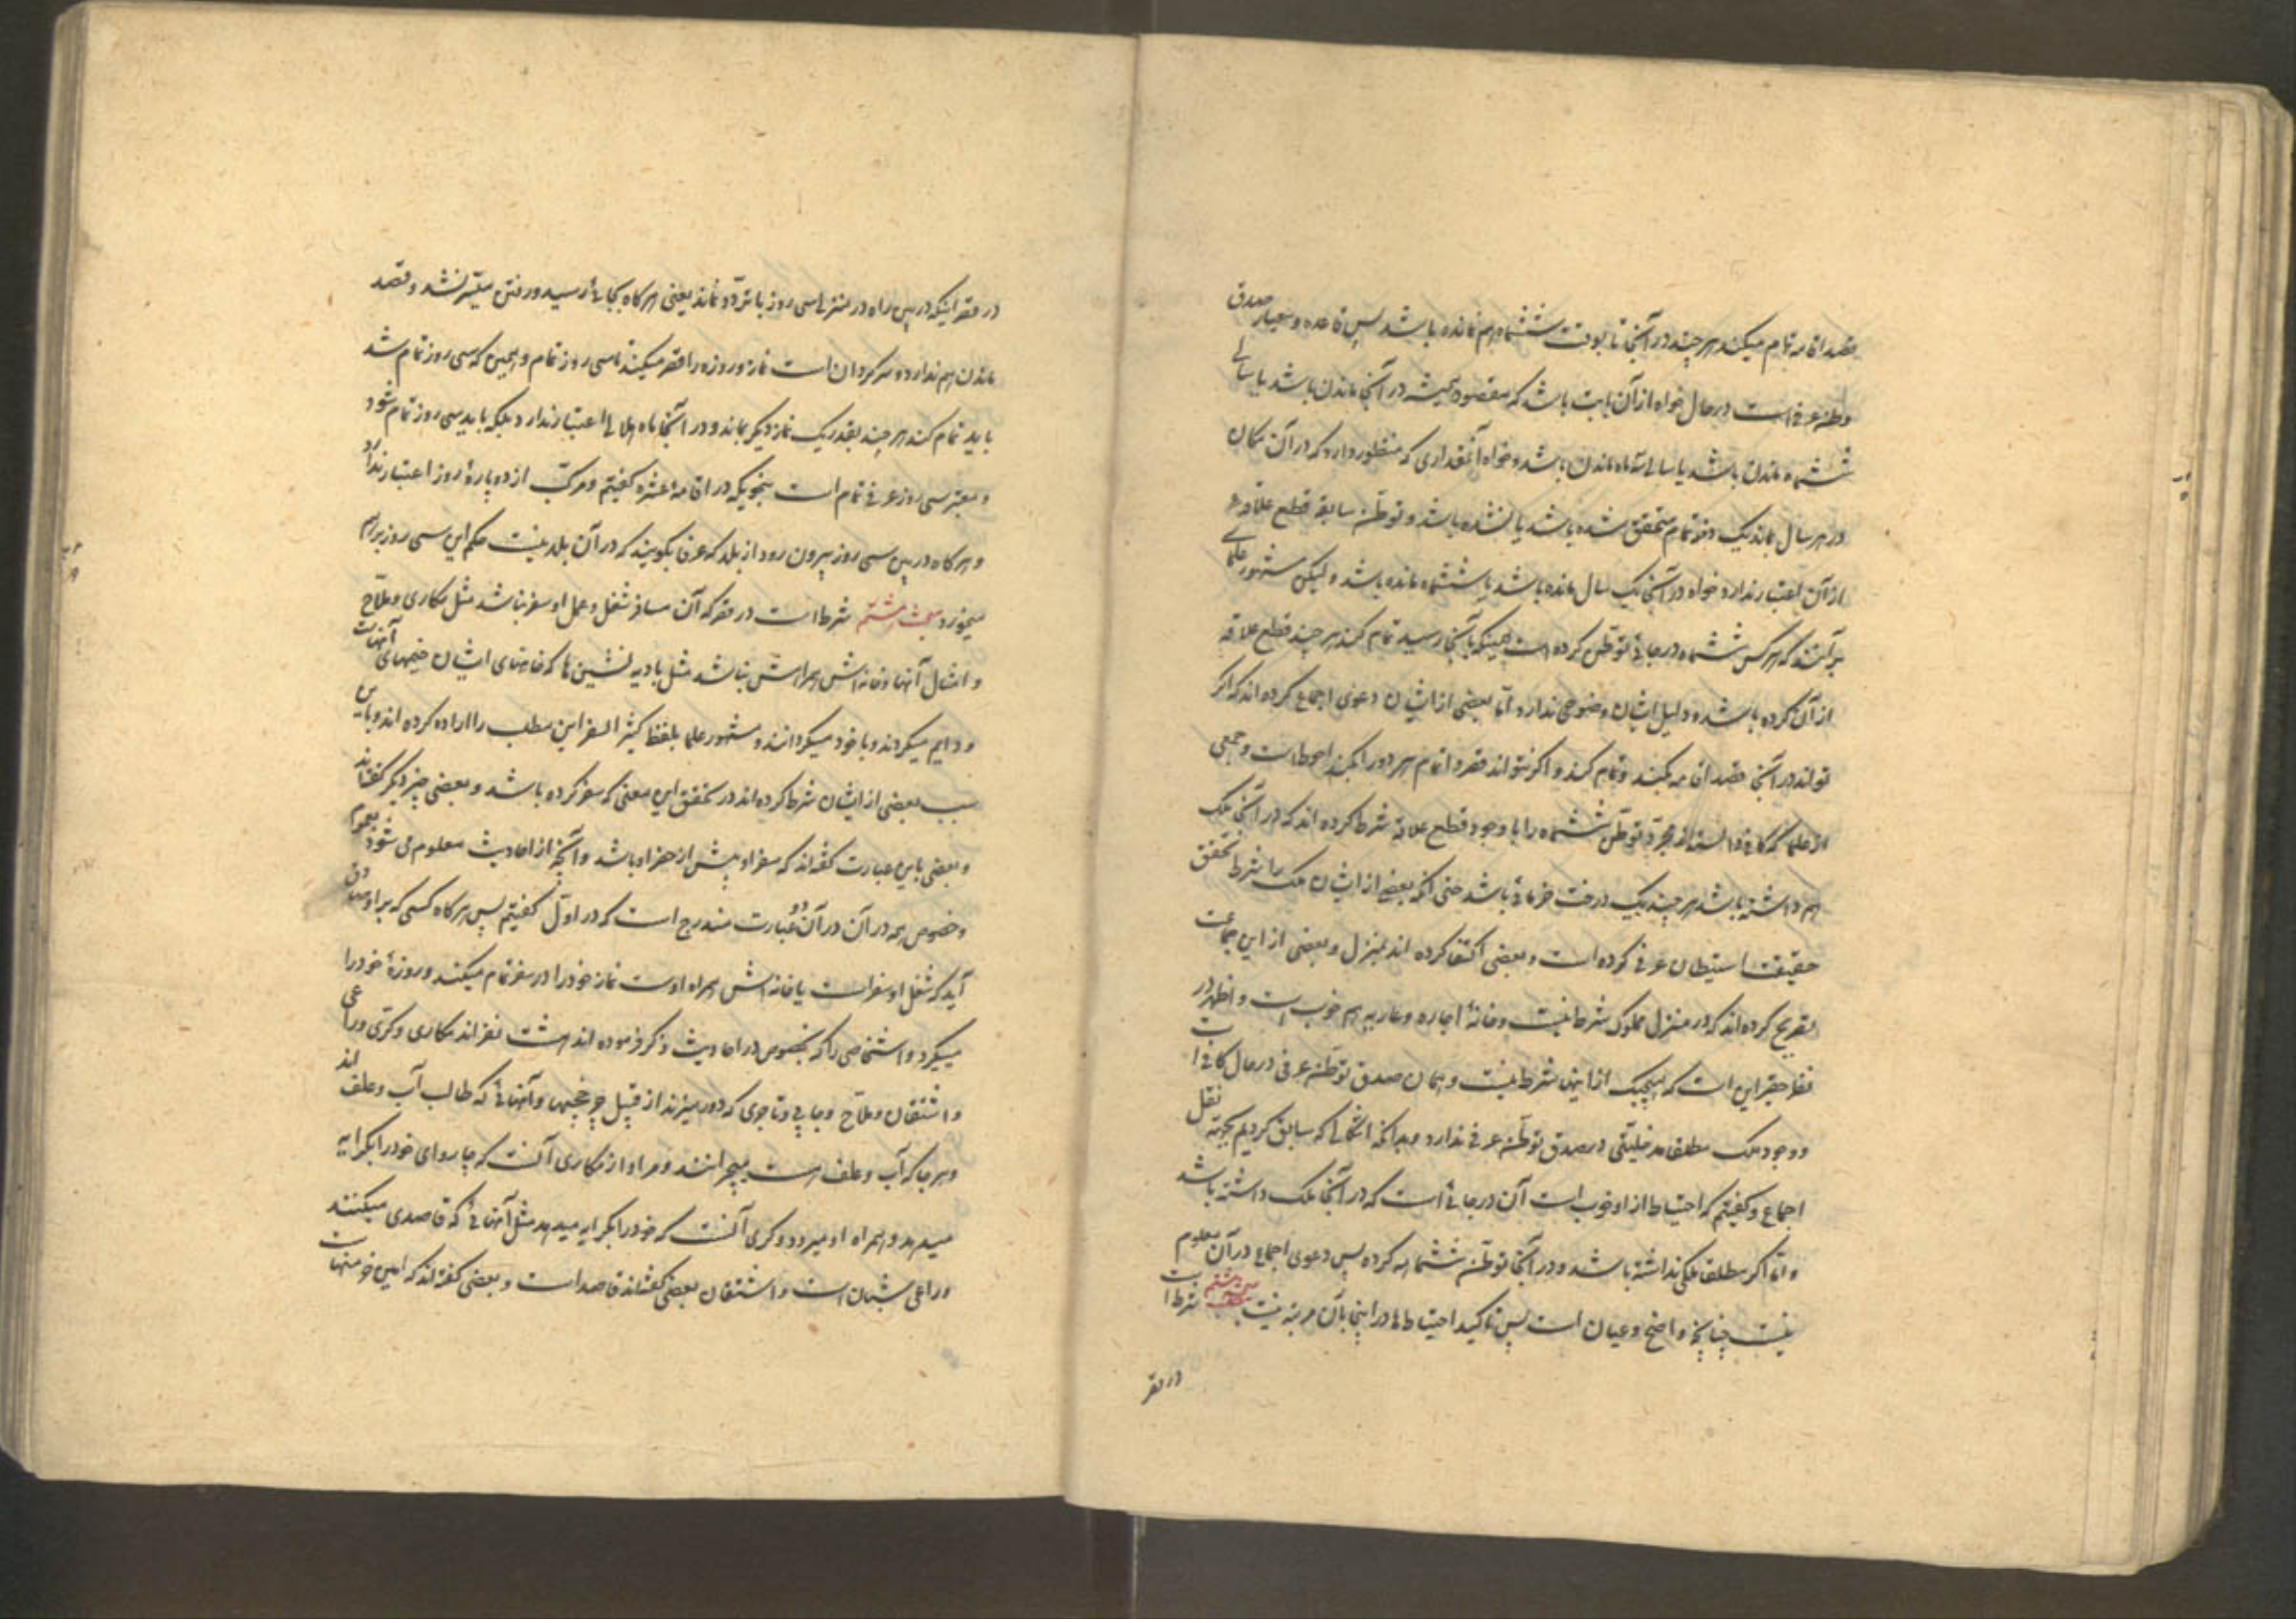 قصد اقامه تمام میکند هر چند در آنجا تا بوقت ششماه هم نمانده باشد پس قاعده و معیار صدق
وطن عرفی است در حال خواه از آن بابت باشد که مقصود همیشه در آنجا ماندن باشد یا سالی
ششماه ماندن باشد یا سالی سه ماه ماندن باشد و خواه آنقداری که منظور دارد که در آن مکان
در هر سال بماند یک دفعه تمام متحقق شده باشد یا نشده باشد و توطن سابقه قطع علاقه
از آن اعتبار ندارد خواه در آنجا یک سال مانده باشد یا ششماه مانده باشد و لیکن مشهور علما
برآنند که هر کس ششماه در جائی توطن کرده است همینکه بآنجا رسید تمام کند هر چند قطع علاقه
از آن کرده باشد و دلیل ایشان وضوحی ندارد اما بعضی از ایشان دعوی اجماع کرده اند که اگر
تواند در آنجا قصد اقامه بکند و تمام کند و اگر نتواند قصر و اتمام هر دو را بکند احوط است و جمعی
از علما که کافی دانسته اند مجرد توطن ششماه را با وجود قطع علاقه شرط کرده اند که در آنجا ملک
هم داشته باشد هر چند یک درخت خرمائی باشد حتی آنکه بعضی از ایشان ملک را شرط تحقق
حقیقت استیطان عرفی کرده است و بعضی اکتفا کرده اند بمنزل و بعضی از این جماعت
تصریح کرده اند که در منزل مملوک شرط نیست و خانهٔ اجاره و عاریه هم خوب است و اظهر در
نظر حقیر این است که هیچیک از اینها شرط نیست و همان صدق توطن عرفی در حال کافی است
و وجود ملک مطلقا مدخلیتی در صدق توطن عرفی ندارد و بدانکه اشکالی که سابق کردیم بجهة نقل
اجماع و گفتیم که احتیاط از او خوب است آن در جائی است که در آنجا ملک داشته باشد
و اما اگر مطلقا ملکی نداشته باشد و در آنجا توطن ششماهه کرده پس دعوی اجماع در آن معلوم
نیست چنانچه واضح و عیان است پس تاکید احتیاطها در اینجا بآن مرتبه نیست مبحث هشتم شرط است
در قصر
در قصر اینکه در بین راه در منزلی سی روز با تردد نماند یعنی هر گاه بجائی رسید و رفتن میسر نشد و قصد
ماندن هم ندارد و سرگردان است نماز و روزه را قصر میکند تا سی روز تمام و همین که سی روز تمام شد
باید تمام کند هر چند بقدر یک نماز دیگر بماند و در آنجا ماه هلالی اعتبار ندارد بلکه باید سی روز تمام شود
و معتبر سی روز عرفی تمام است بنحویکه در اقامه عشره گفتیم و مرکب از دو پارهٔ روز اعتبار ندارد
و هر گاه در بین سی روز بیرون رود از بلد که عرفا بگویند که در آن بلد نیست حکم این سی روز برهم
میخورد مبحث هشتم شرط است در قصر که آن مسافر شغل و عمل او سفر نباشد مثل مکاری و ملاح
و امثال آنها و خانه اش همراهش نباشد مثل بادیه نشین ها که خانهای ایشان خیمهای آنهاست
و دایم میگردند و با خود میگردانند و مشهور علما بلفظ کثیر السفر این مطلب را اراده کرده اند و باین
سبب بعضی از ایشان شرط کرده اند در تحقق این معنی که سه سفر کرده باشد و بعضی چیز دیگر گفته اند
و بعضی باین عبارت گفته اند که سفر او بیش از حضر او باشد و آنچه از احادیث معلوم می شود بعموم
و خصوص همه در آن در آن دو عبارت مندرج است که در اول گفتیم پس هر گاه کسی که بر او صادق
آید که شغل او سفر است یا خانه اش همراه اوست نماز خود را در سفر تمام میکند و روزهٔ خود را
میگیرد و اشخاصی را که بخصوص در احادیث ذکر فرموده اند هشت نفر اند مکاری و کری و راعی
و اشتقان و ملاح و جابی و تاجری که دور میزند از قبیل چرخچیها و آنهائی که طالب آب و علف اند
و هر جا که آب و علف است میچرانند و مراد از مکاری آنست که چاروای خود را بکرایه
میدهد و همراه او میرود و کری آنست که خود را بکرایه میدهد مثل آنهائی که قاصدی میکنند
و راعی شبان است و اشتقان بعضی گفته اند قاصد است و بعضی گفته اند که امین خرمنهاست